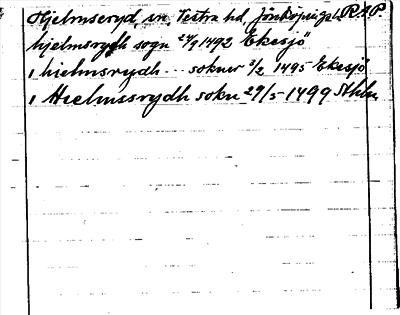 Hjelmseryd, sn. Vestra hd, Jönköpings l. R.A.P.
hjelmsrydh sogn 24/9 1492 Ekesjö
i hielmsrydh--- sokner 3/2 1495 Ekesjö
i Hielmssrydh sokn 29/5-1499 Sthlm